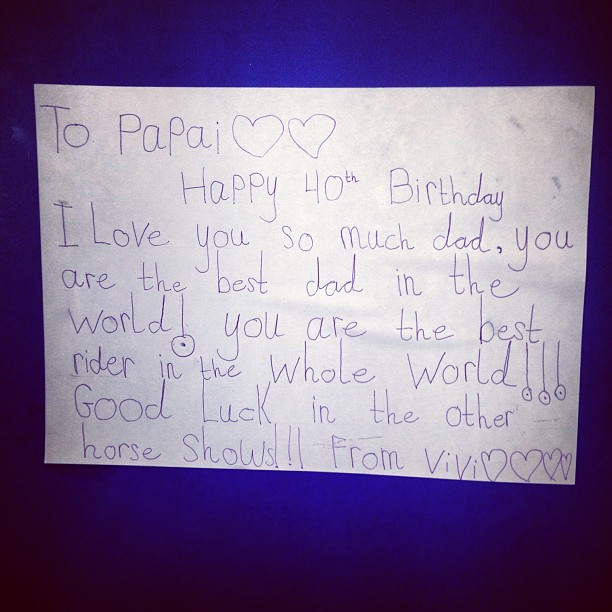 To Papai ♡♡
Happy 40th Birthday
I Love you so much dad, you
are the best dad in the
world! you are the best
rider in the whole world!!!
Good Luck in the other
horse shows!!! From ViVi♡♡♡♡